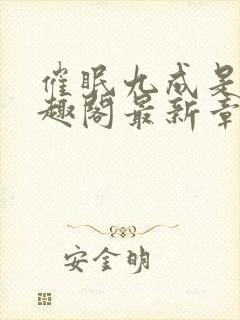 催眠九成是
趣阁最新章
安金明